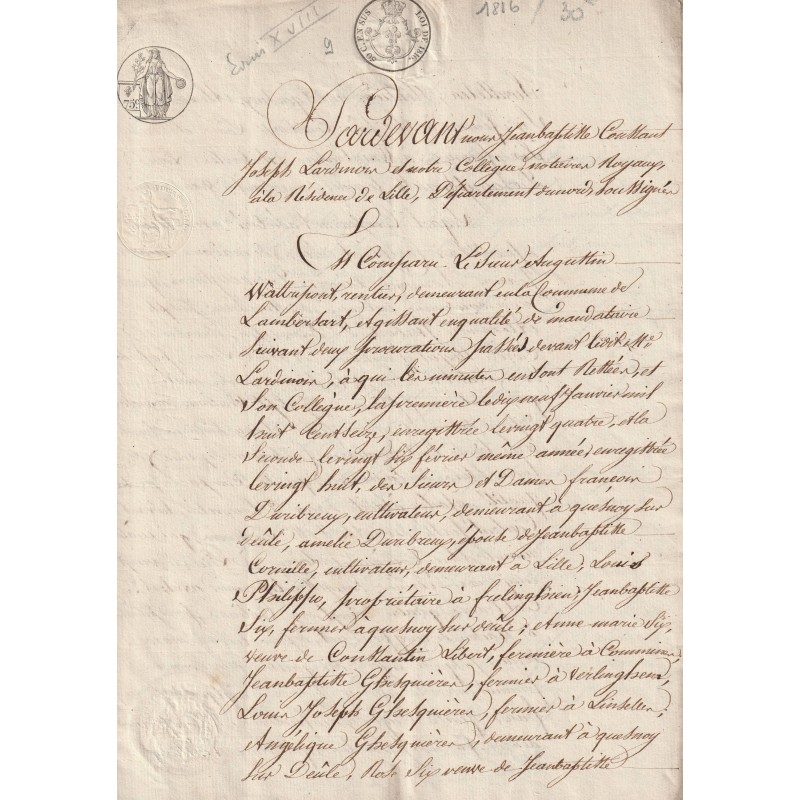 1816 / 30
Louis XVIII
9
50 C. EN SUS
LOI DE 1816
75c
Pardevant nous Jeanbaptiste Constant
Joseph Lardinois et notre Collègue, notaires Royaux,
à la Résidence de Lille, Département du nord, Soussignés
Est Comparu Le Sieur Augustin
Wallripont, rentier, demeurant en la Commune de
Lambersart, et gissant en qualité de mandataire
suivant deux procurations passées devant ledit Me.
Lardinois, à qui les minutes en sont Restées, et
Son Collègue, la première le dix neuf Janvier mil
huit Cent Seize, enregistrée le vingt quatre, et la
Seconde le vingt Six février même année, enregistrée
le vingt huit, des Sieurs et Dames françois
Duribreux, cultivateur, demeurant à quesnoy sur
deûle, amelie Duribreux, épouse de Jeanbaptiste
Cornille, cultivateur, demeurant à Lille, Louis
Philippo, propriétaire à frelinghien, Jeanbaptiste
Six, fermier à quesnoy sur deûle, et anne marie Six,
veuve de Constantin Libert, fermière à Commines,
Jeanbaptiste Ghesquière, fermier à Verlinghem,
Louis Joseph Ghesquière, fermier à Linselles,
Angélique Ghesquière, demeurant à quesnoy
sur Deûle, Rose Six veuve de Jeanbaptiste